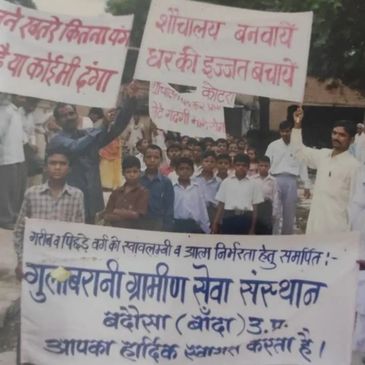 कितना दम
है या कोई भी दंगा
शौचालय बनवायें
घर की इज्जत बचायें
गरीब व पिछड़े वर्ग की स्वावलम्बी व आत्म निर्भरता हेतु समर्पित:-
गुलाबरानी ग्रामीण सेवा संस्थान
बदौसा (बाँदा) उ.प्र.
आपका हार्दिक स्वागत करता है।